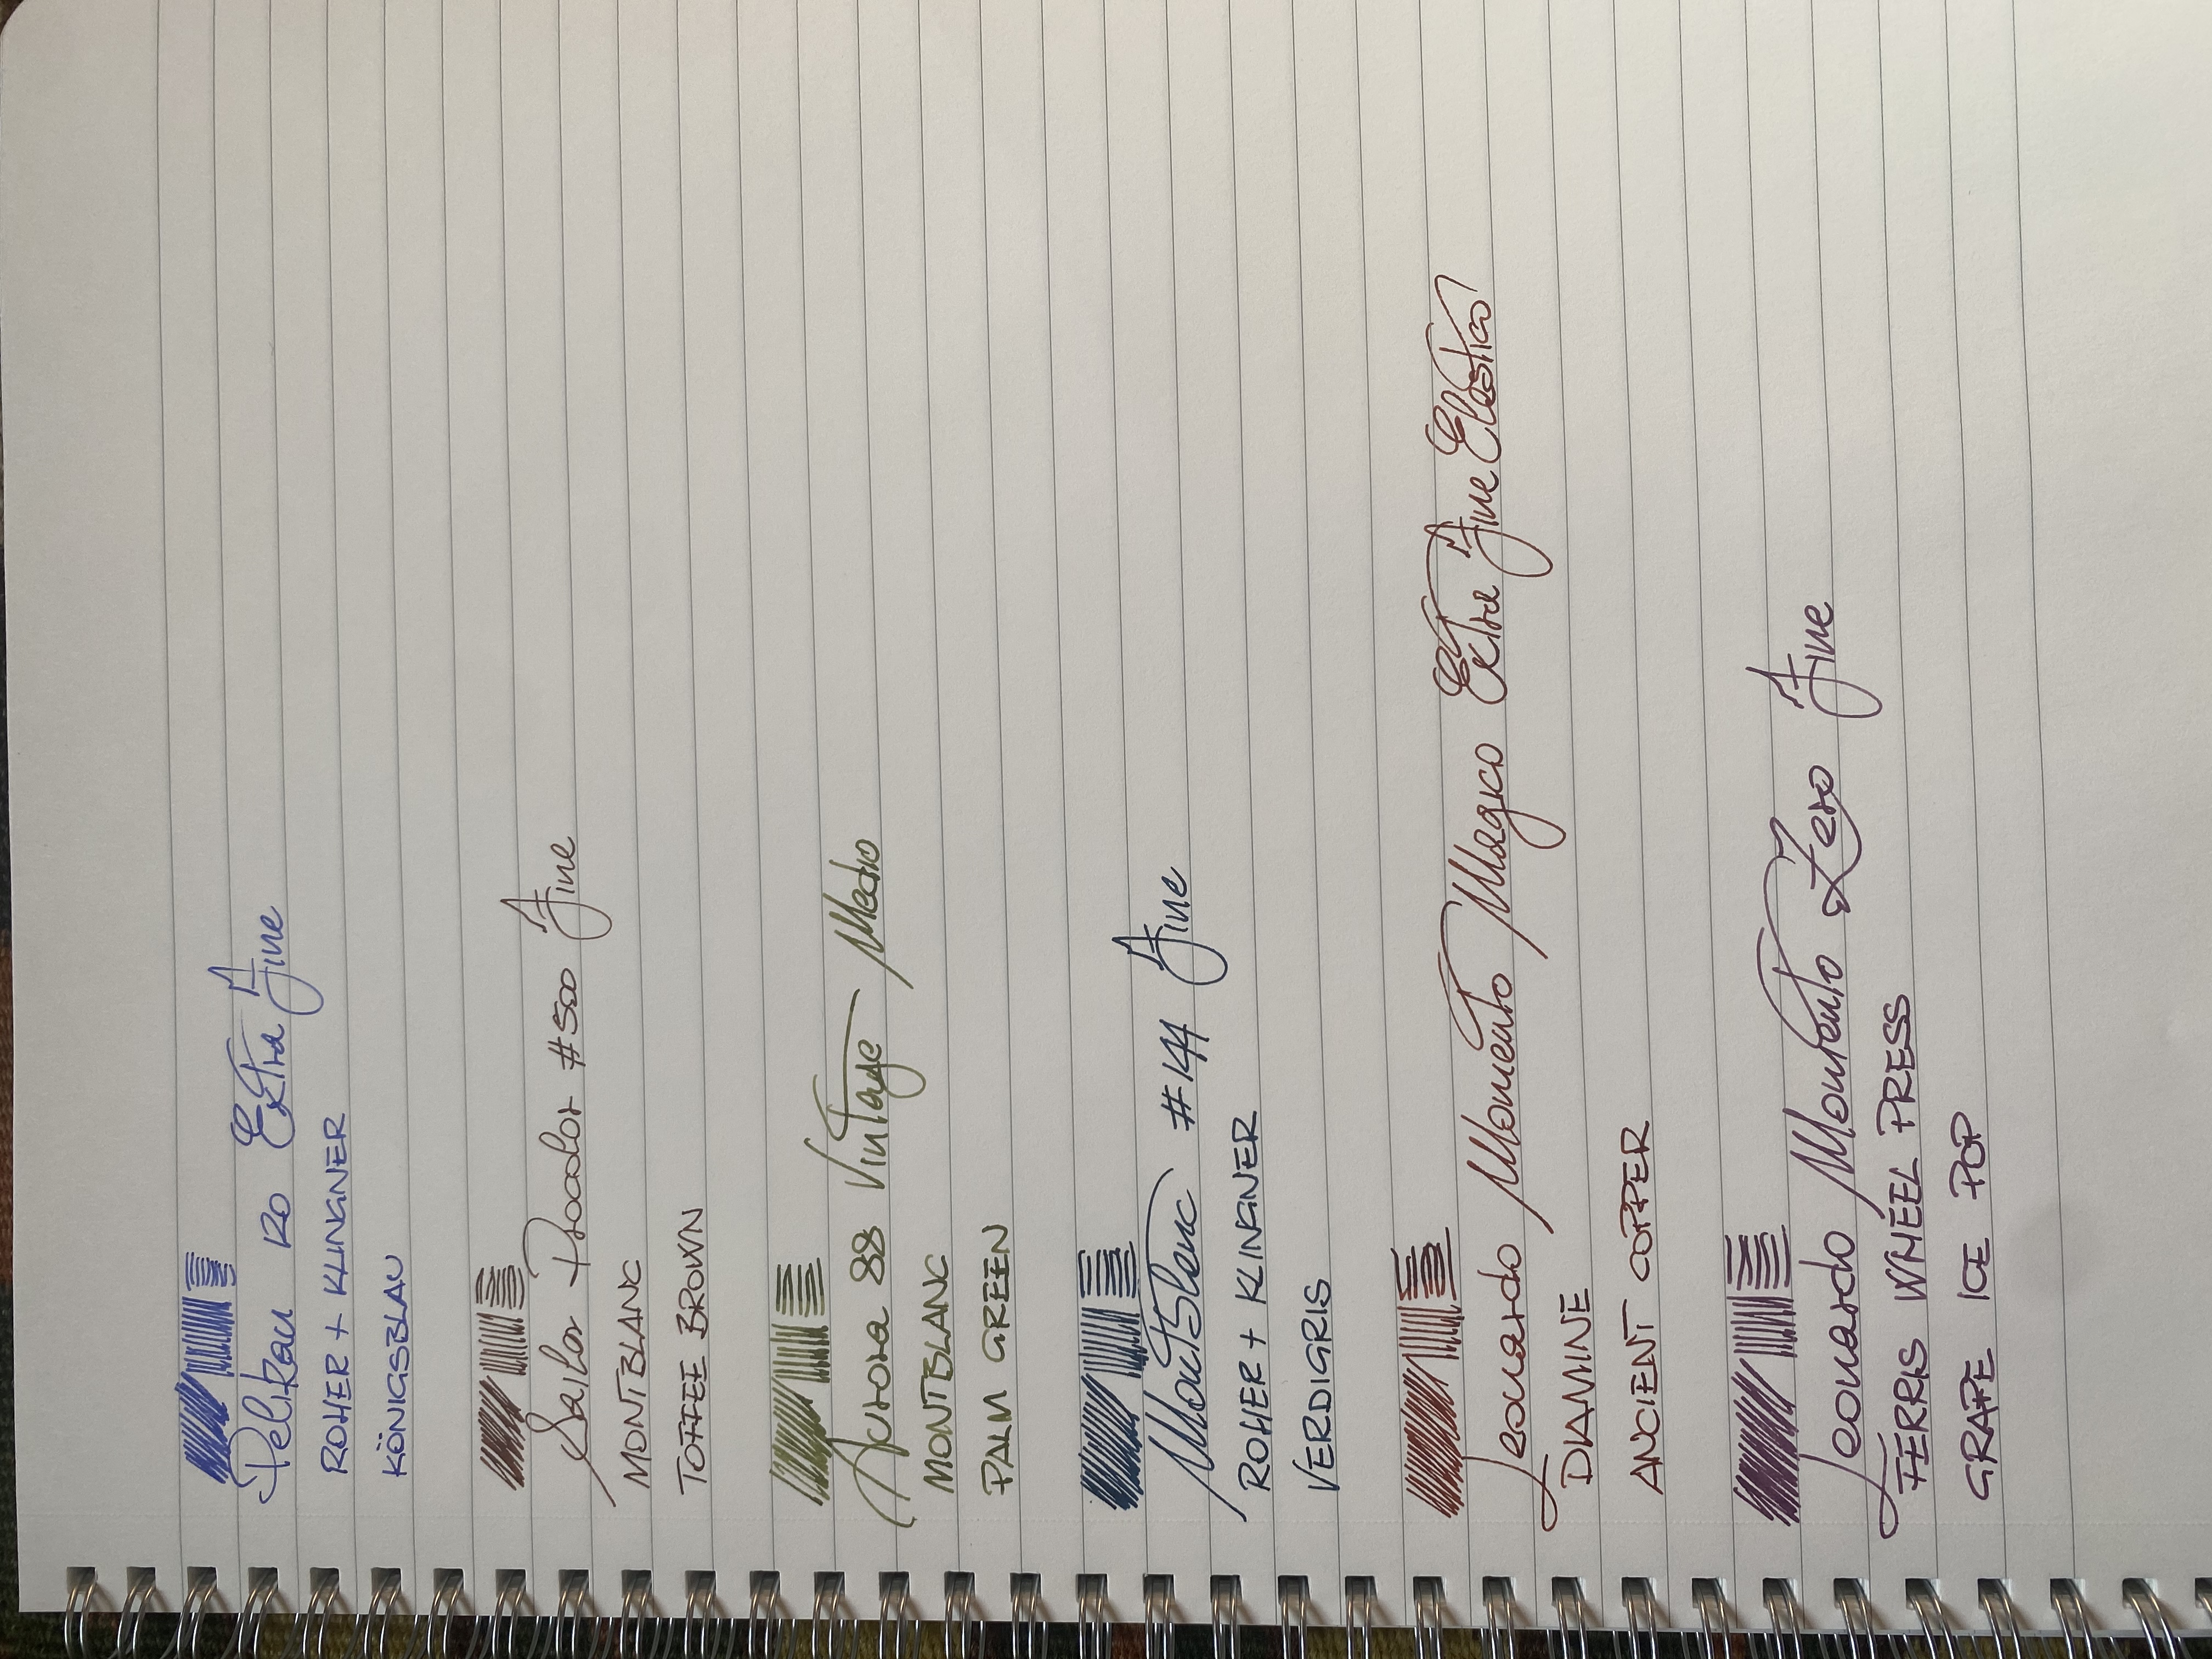 Pelikan 120 Extra Fine
ROHER + KLINGNER
KÖNIGSBLAU
Sailor Procolor #500 Fine
MONTBLANC
TOFFEE BROWN
Aurora 88 Vintage Medio
MONTBLANC
PALM GREEN
Montblanc #144 Fine
ROHER + KLINGNER
VERDIGRIS
Leonardo Momento Magico Extra Fine Elastico
DIAMINE
ANCIENT COPPER
Leonardo Momento Zero Fine
FERRIS WHEEL PRESS
GRAPE ICE POP